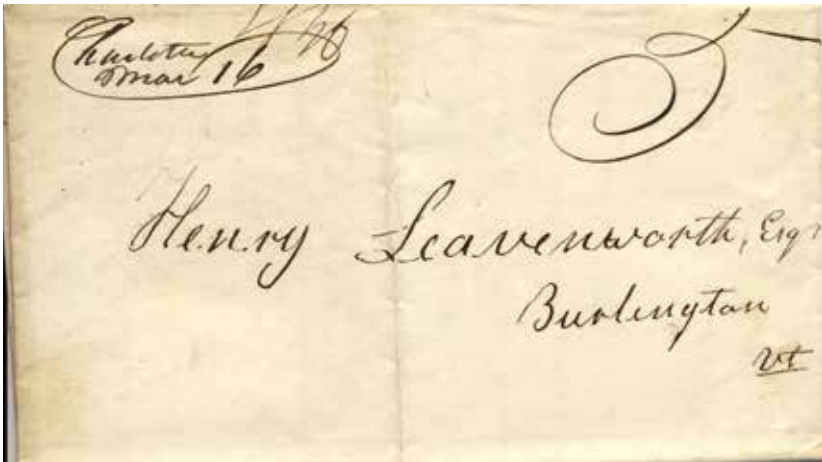 Charlotte
Mar 16
5
Henry Leavenworth, Esqr
Burlington
Vt